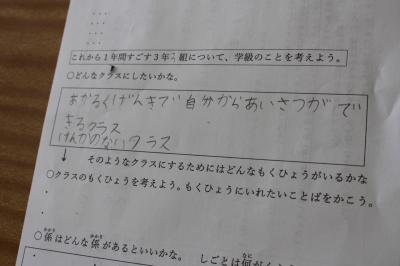 これから1年間すごす3年 組について、学級のことを考えよう。
○どんなクラスにしたいかな。
あかるくげんきで自分からあいさつがで
きるクラス
けんかのないクラス
そのようなクラスにするためにはどんなもくひょうがいるかな
○クラスのもくひょうを考えよう。もくひょうにいれたいことばをかこう。
○係はどんな係があるといいかな。 しごとは何が